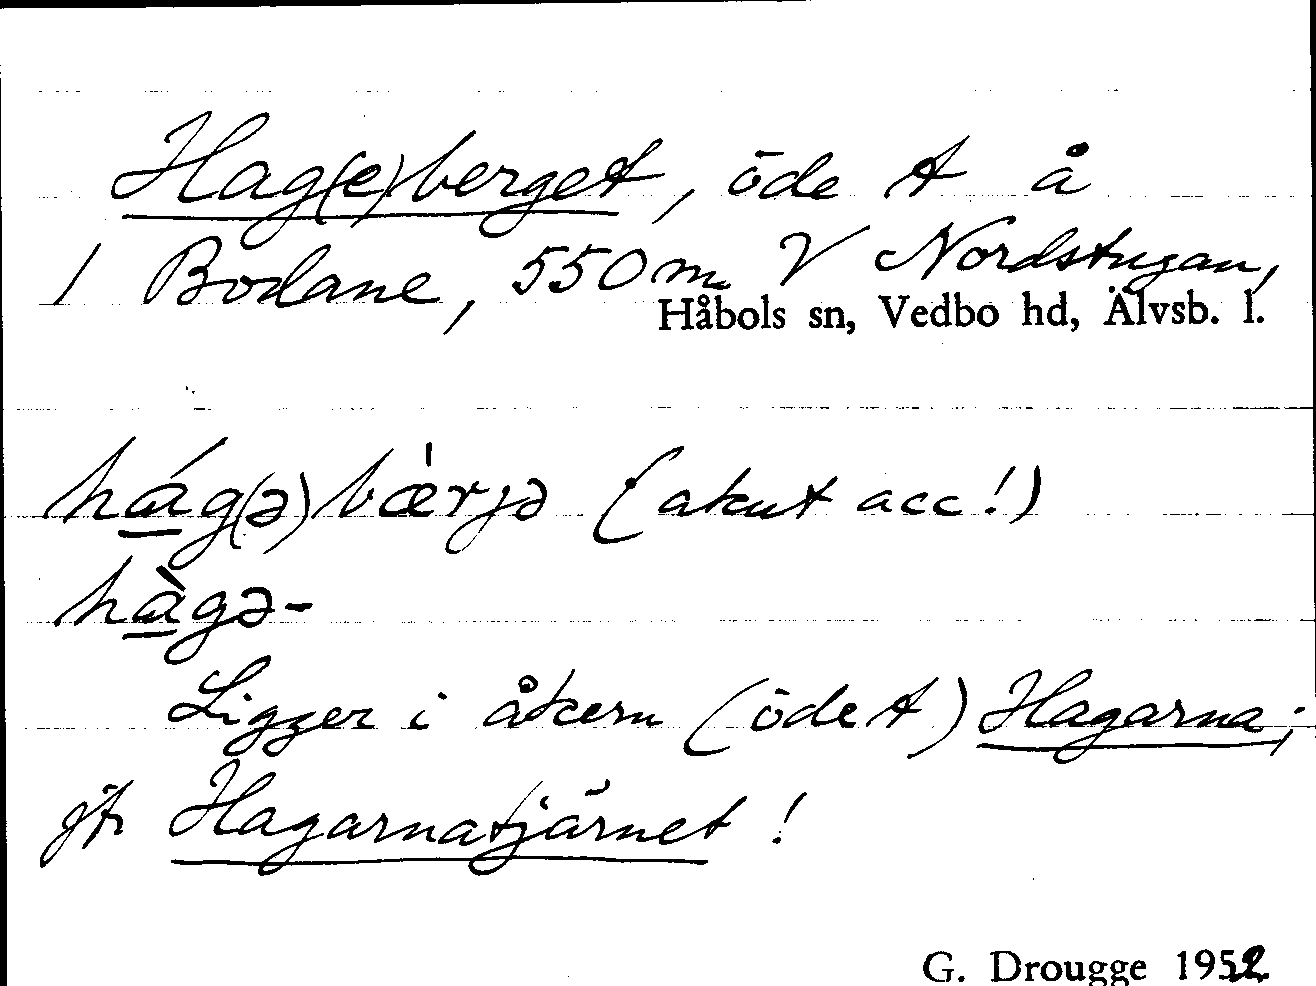 Hag(e)berget, öde t å
1 Bodane, 550 m V Nordstugan,
Håbols sn, Vedbo hd, Älvsb. l.
hág(ə)bæ̀rjə (akut acc!)
hàgə-
Ligger i åkern (öde t) Hagarna;
jfr Hagarnatjärnet!
G. Drougge 1952